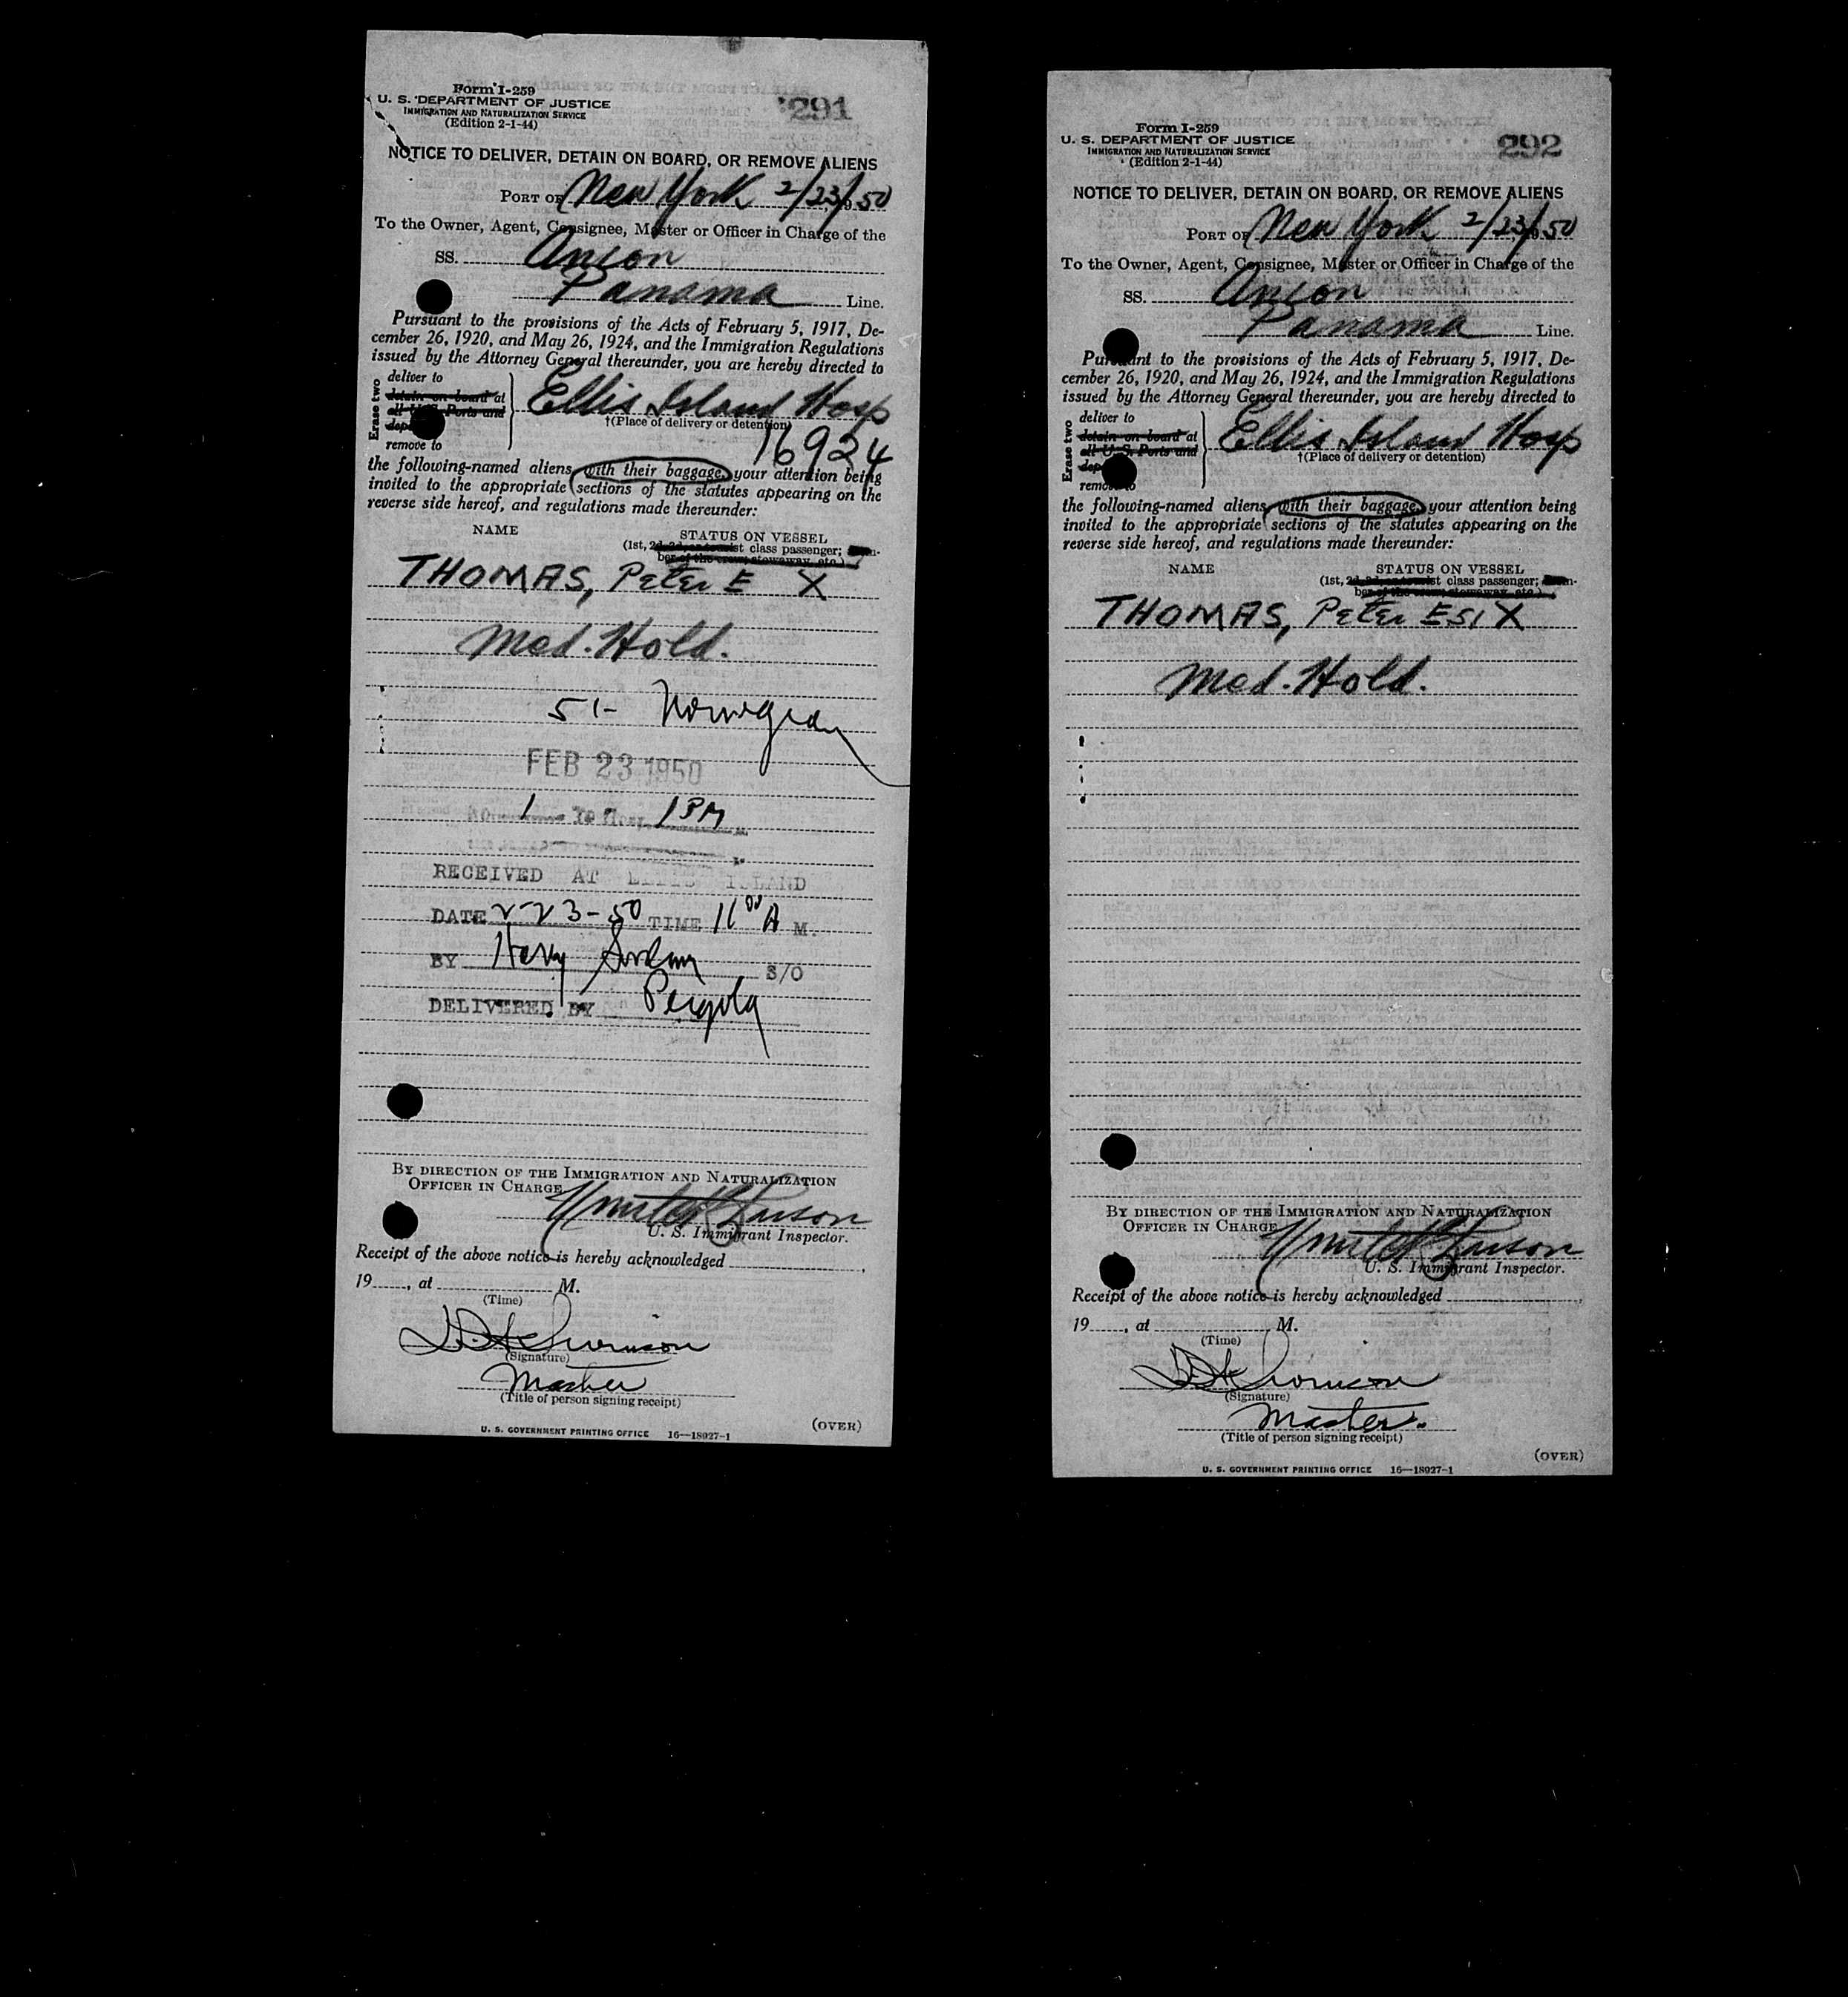 Form I-259
U. S. DEPARTMENT OF JUSTICE
IMMIGRATION AND NATURALIZATION SERVICE
(Edition 2-1-44)
291
NOTICE TO DELIVER, DETAIN ON BOARD, OR REMOVE ALIENS
PORT OF New York 2/23/1950
To the Owner, Agent, Consignee, Master or Officer in Charge of the
SS. Ancon
Panama Line.
Pursuant to the provisions of the Acts of February 5, 1917, De-
cember 26, 1920, and May 26, 1924, and the Immigration Regulations
issued by the Attorney General thereunder, you are hereby directed to
Erase two
deliver to
detain on board at
all U. S. Ports and
remove to
Ellis Island Hosp
†(Place of delivery or detention)
16924
the following-named aliens with their baggage, your attention being
invited to the appropriate sections of the statutes appearing on the
reverse side hereof, and regulations made thereunder:
NAME
STATUS ON VESSEL
(1st, 2d, 3d, or tourist class passenger; mem-
ber of the crew; stowaway, etc.)
THOMAS, Peter E X
Med. Hold.
51- Norwegian
FEB 23 1950
1 To Hosp 1 PM
RECEIVED AT ELLIS ISLAND
DATE 2-23-50 TIME 11 00 A M.
BY Harry S/O
DELIVERED BY Pergola
BY DIRECTION OF THE IMMIGRATION AND NATURALIZATION
OFFICER IN CHARGE
U. S. Immigrant Inspector.
Receipt of the above notice is hereby acknowledged
19 , at M.
(Time)
(Signature)
Master
(Title of person signing receipt)
(OVER)
U. S. GOVERNMENT PRINTING OFFICE 16—18027-1
Form I-259
U. S. DEPARTMENT OF JUSTICE
IMMIGRATION AND NATURALIZATION SERVICE
(Edition 2-1-44)
292
NOTICE TO DELIVER, DETAIN ON BOARD, OR REMOVE ALIENS
PORT OF New York 2/23/1950
To the Owner, Agent, Consignee, Master or Officer in Charge of the
SS. Ancon
Panama Line.
Pursuant to the provisions of the Acts of February 5, 1917, De-
cember 26, 1920, and May 26, 1924, and the Immigration Regulations
issued by the Attorney General thereunder, you are hereby directed to
Erase two
deliver to
detain on board at
all U. S. Ports and
remove to
Ellis Island Hosp
†(Place of delivery or detention)
the following-named aliens with their baggage, your attention being
invited to the appropriate sections of the statutes appearing on the
reverse side hereof, and regulations made thereunder:
NAME
STATUS ON VESSEL
(1st, 2d, 3d, or tourist class passenger; mem-
ber of the crew; stowaway, etc.)
THOMAS, Peter E 51 X
Med. Hold.
BY DIRECTION OF THE IMMIGRATION AND NATURALIZATION
OFFICER IN CHARGE
U. S. Immigrant Inspector.
Receipt of the above notice is hereby acknowledged
19 , at M.
(Time)
(Signature)
Master.
(Title of person signing receipt)
(OVER)
U. S. GOVERNMENT PRINTING OFFICE 16—18027-1